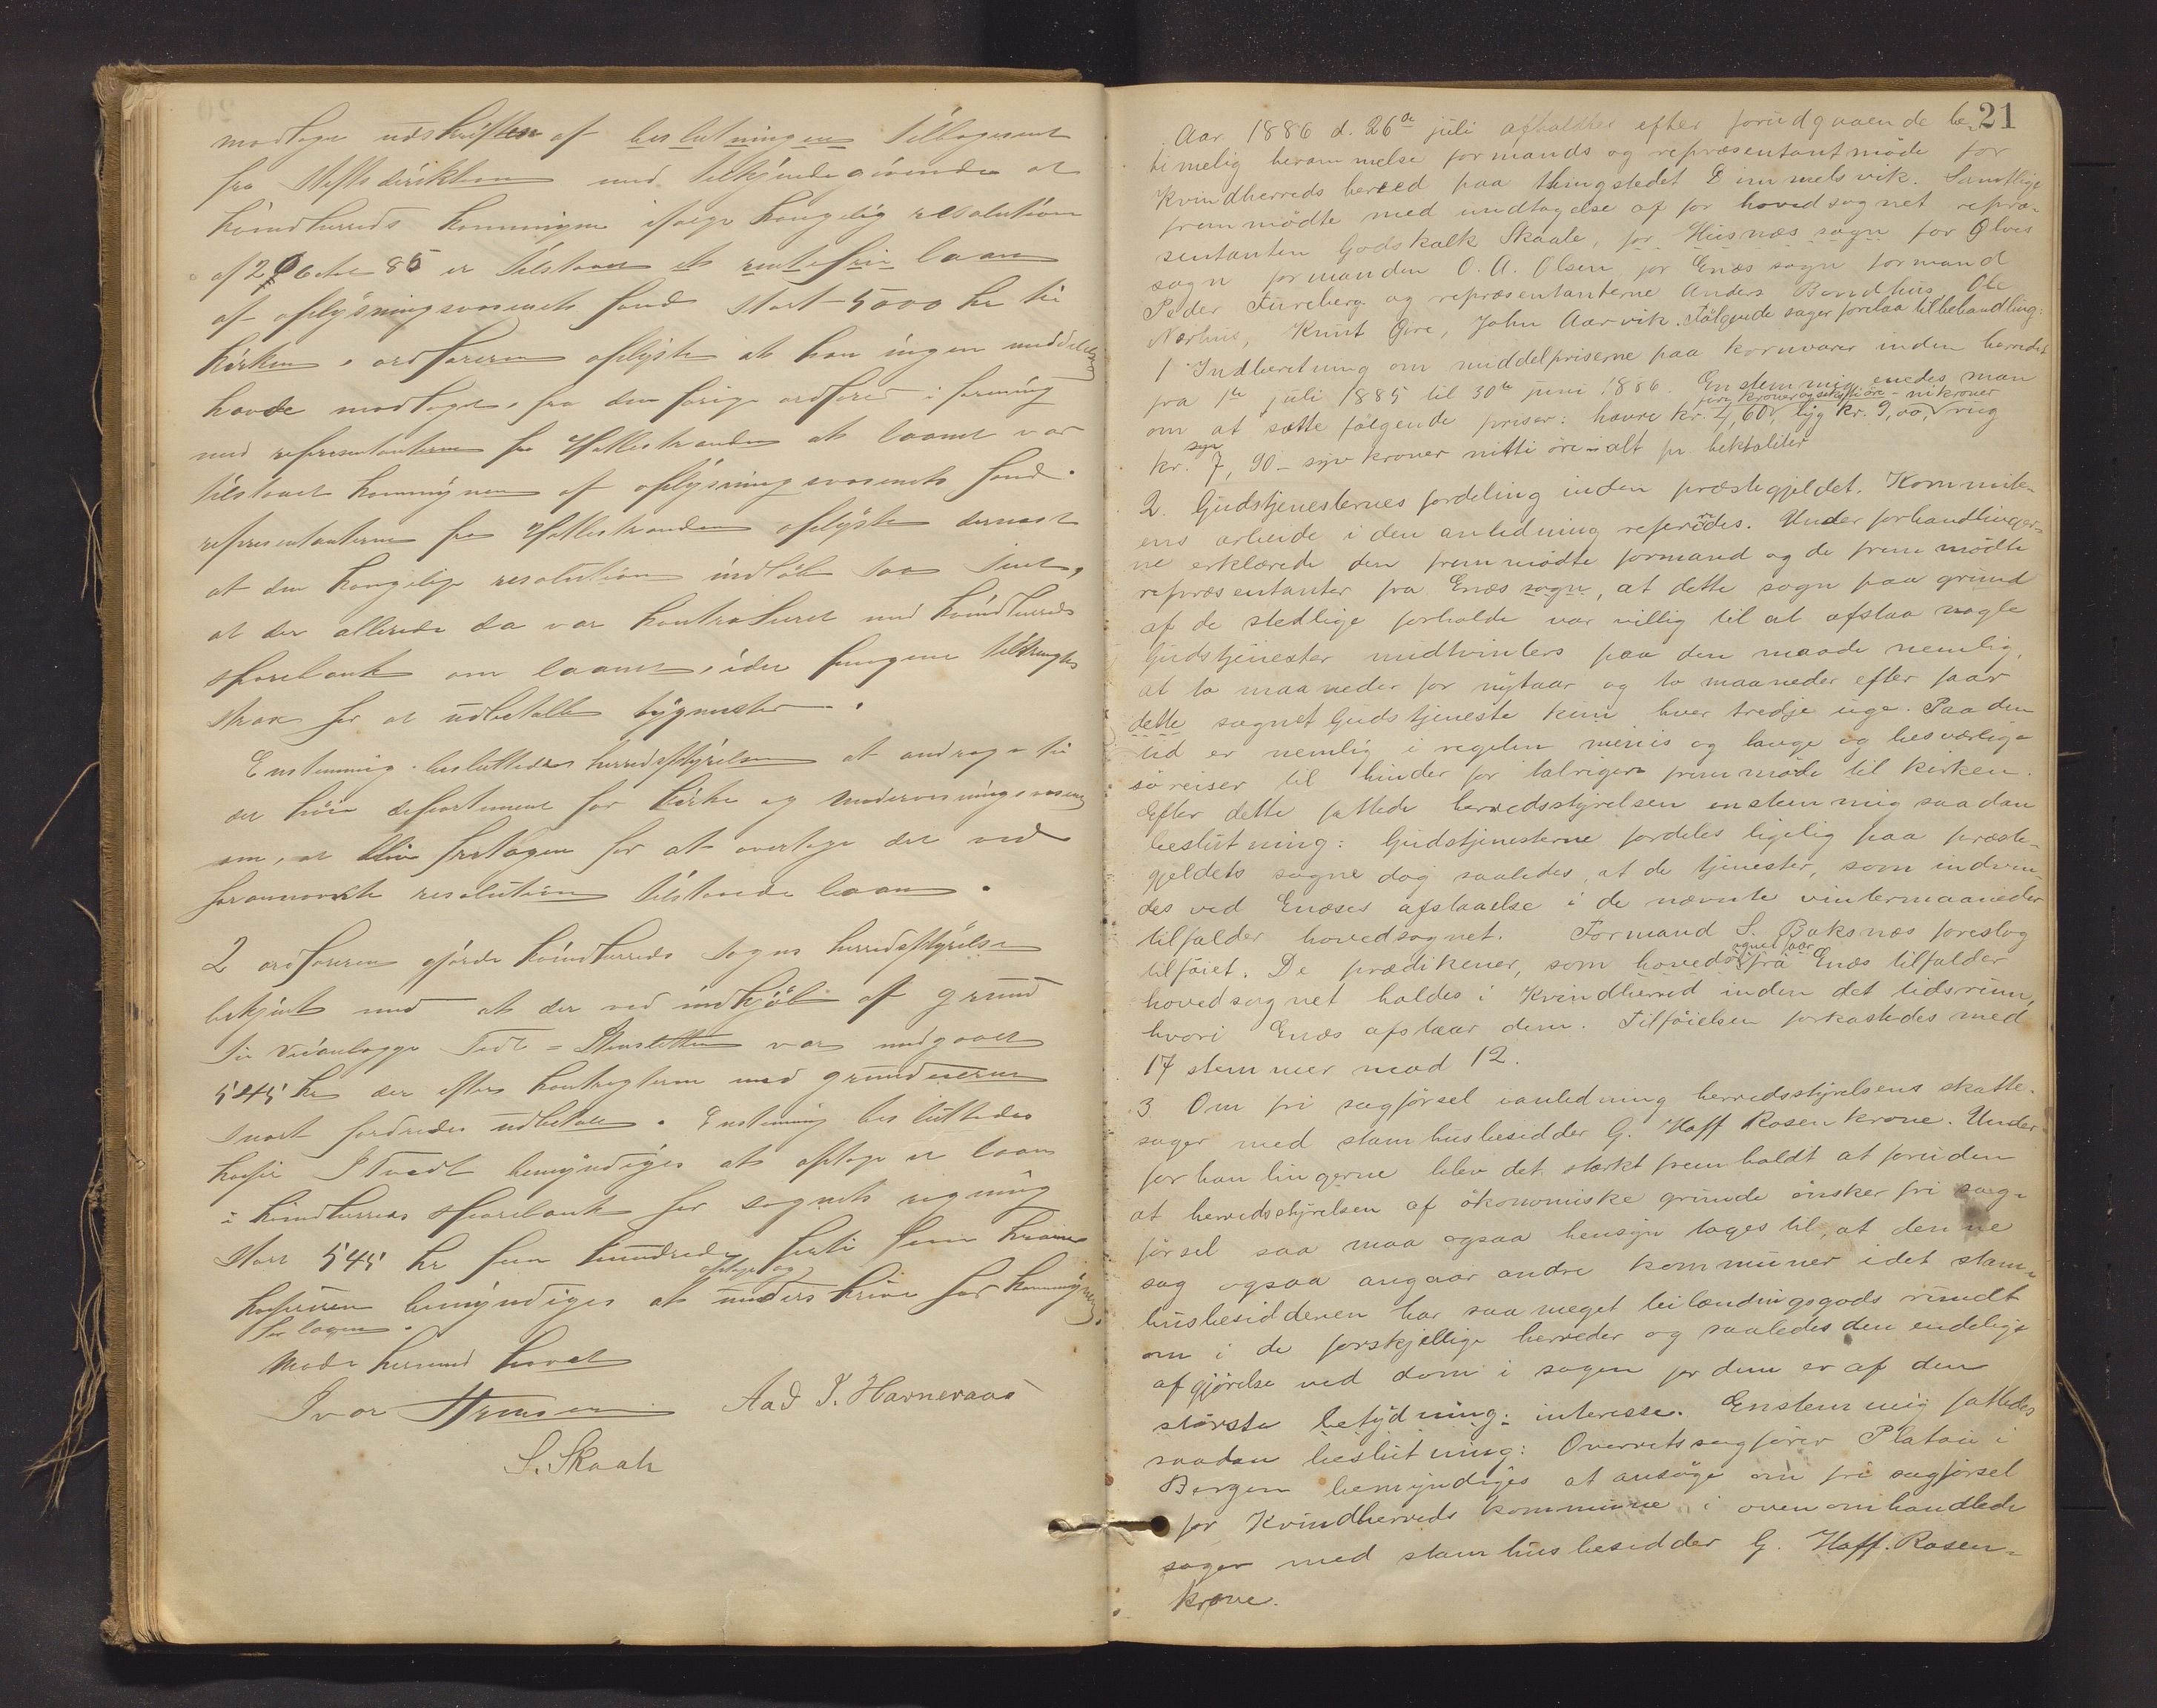 modtage udskriften af beslutningen tilbagesent
fra Stiftsdirektionen med tilkjendegivende at
Kvindherreds kommune ifølge kongelig resolution
af 2 Octbr 85 er tilstaaet et rentefrit laan
af oplysningsvæsenets fond stort 5000 kr til
kirken. ordføreren oplyste at han ingen meddelelse
havde modtaget fra den forige ordfører i forening
med representanterne fra Hatlestranden at laanet var
tilstaaet kommunen af oplysningsvæsenets fond.
representanterne fra Hatlestranden oplyste dernæst
at den kongelige resolution indløb saa sent,
at der allerede da var kontraheret med Kvindherreds
sparebank om laanet, idet pengene tiltrængtes
strax for at udbetale bygmester.
Enstemmig besluttedes herredsstyrelsen at andrage til
det høie departement for kirke og undervisningsvæsenet
om, at blive fritagen for at overtage det ved
forannævnte resolution tilstaaede laan.
2 ordføreren gjorde Kvindherreds sogns herredsstyrelse
bekjent med at der ved indkjøb af grund
til veianlægge Tvedt = Stensletten var medgaaet
545 kr der efter kontrakterne med grundeierne
snart fordredes udbetalt. Enstemmig besluttedes
kasserer I Tvedt bemyndiges at optage et laan
i Kvindherreds sparebank for sognets regning
stort 545 kr fem hundrede forti fem kroner
optage og
kassereren bemyndiges at underskrive for kommunen
for lagen.
Møde hermed hævet
Ivar Hansen Aad T. Harneraas
S. Skaale
21
Aar 1886 d. 26de juli afholdtes efter forudgaaende be-
timelig berammelse formands og repræsentantmøde for
Kvindherreds herred paa thingstedet Dimmelsvik. Samtlige
fremmødte med undtagelse af for hovedsognet repræ-
sentanten Godskalk Skaale, for Husnæs sogn for Ølves
sogn formanden O. A. Olsen for Enæs sogn formand
Peder Fureberg og repræsentanterne Anders Bondhus, Ole
Nerhus, Knut Øire, John Aarvik. Følgende sager forelaa til behandling:
1 Indberetning om middelpriserne paa kornvarer inden herredet
fra 1te juli 1885 til 30te juni 1886. Enstemmig enedes man
fire kroner og seksti øre - ni kroner
om at sætte følgende priser: havre kr. 4,60, byg kr. 9,00, rug
syv
kr. 7, 90 - syv kroner nitti øre - alt pr hektoliter
2. Gudstjenesternes fordeling inden præstegjeldet. Kommite-
ens arbeide i den anledning refereredes. Under forhandlinger-
ne erklærede den fremmødte formand og de fremmødte
repræsentanter fra Enæs sogn, at dette sogn paa grund
af de stedlige forholde var villig til at afstaa nogle
Gudstjenester midtvinters paa den maade nemlig,
at to maaneder før nytaar og to maaneder efter faar
dette sognet Gudstjeneste kun hver tredje uge. Paa den
tid er nemlig i regelen menis og lange og besværlige
søreiser til hinder for talrigere fremmøde til kirken.
Efter dette fattede herredsstyrelsen enstemmig saadan
beslutning: Gudstjenesterne fordeles ligelig paa præste-
gjeldets sogne dog saaledes, at de tjenester, som indvin-
des ved Enæses afstaaelse i de nævnte vintermaaneder
tilfalder hovedsognet. Formand S. Baksnæs foreslog
ognet faar
tilføiet: De prædikener, som hoveds fra Enæs tilfalder
hovedsognet holdes i Kvindherred inden det tidsrum,
hvori Enæs afstaar dem. Tilføielsen forkastedes med
17 stemmer mod 12.
3 Om fri sagførsel ianledning herredsstyrelsens skatte-
sager med stamhusbesidder G. Hoff Rosenkrone. Under
forhanlingerne blev det stærkt fremholdt at foruden
at herredsstyrelsen af økonomiske grunde ønsker fri sag-
førsel saa maa ogsaa hensyn tages til, at denne
sag ogsaa angaar andre kommuner idet stam-
husbesidderen har saa meget beilændingsgods rundt
om i de forskjellige herreder og saaledes den endelige
afgjørelse ved dom i sagen for dem er af den
største betydning: interesse. Enstemmig fattedes
saadan beslutning: Overretssagfører Platou i
Bergen bemyndiges at ansøge om fri sagførsel
for Kvindherreds kommune i ovenomhandlede
sager med stamhusbesidder G. Hoff. Rosen-
krone.